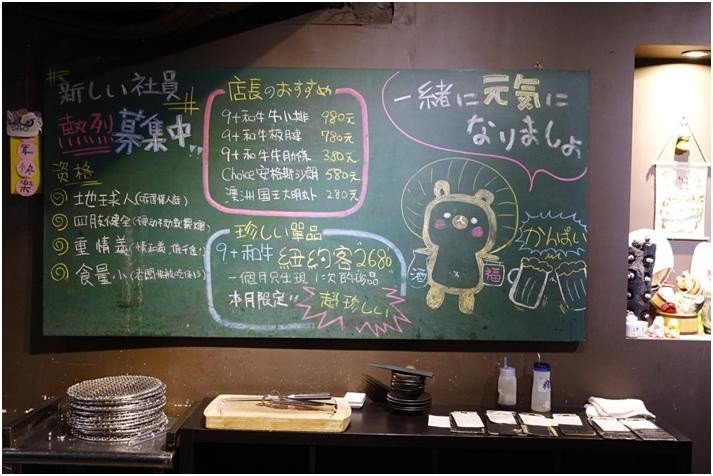 新しい社員
熱烈募集中!!
資格
地球人
四肢健全
重情義
食量小
店長のおすすめ
9+和牛牛小排 980元
9+和牛板腱 780元
9+和牛牛肋條 380元
Choice安格斯沙朗 580元
澳洲国王大明虾 280元
珍しい單品
9+和牛 紐約客 "2680"
一個月只出現1次的珍品
本月限定!!
超珍しい
一緒に元気に
なりましょ
酒
福
かんぱい
年快樂